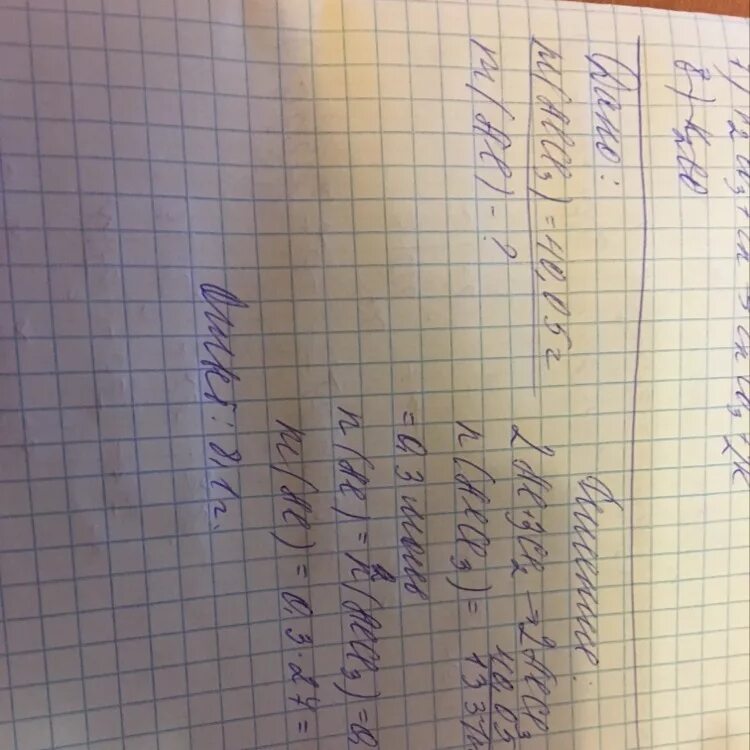 Дано:
m(AlCl₃) = 40,05 г
m(Al) - ?
Решение:
2Al + 3Cl₂ → 2AlCl₃
n(AlCl₃) = 40,05
133,
= 0,3 моль
n(Al) = n(AlCl₃) = 0,
m(Al) = 0,3 · 27 =
Ответ: 8,1 г.